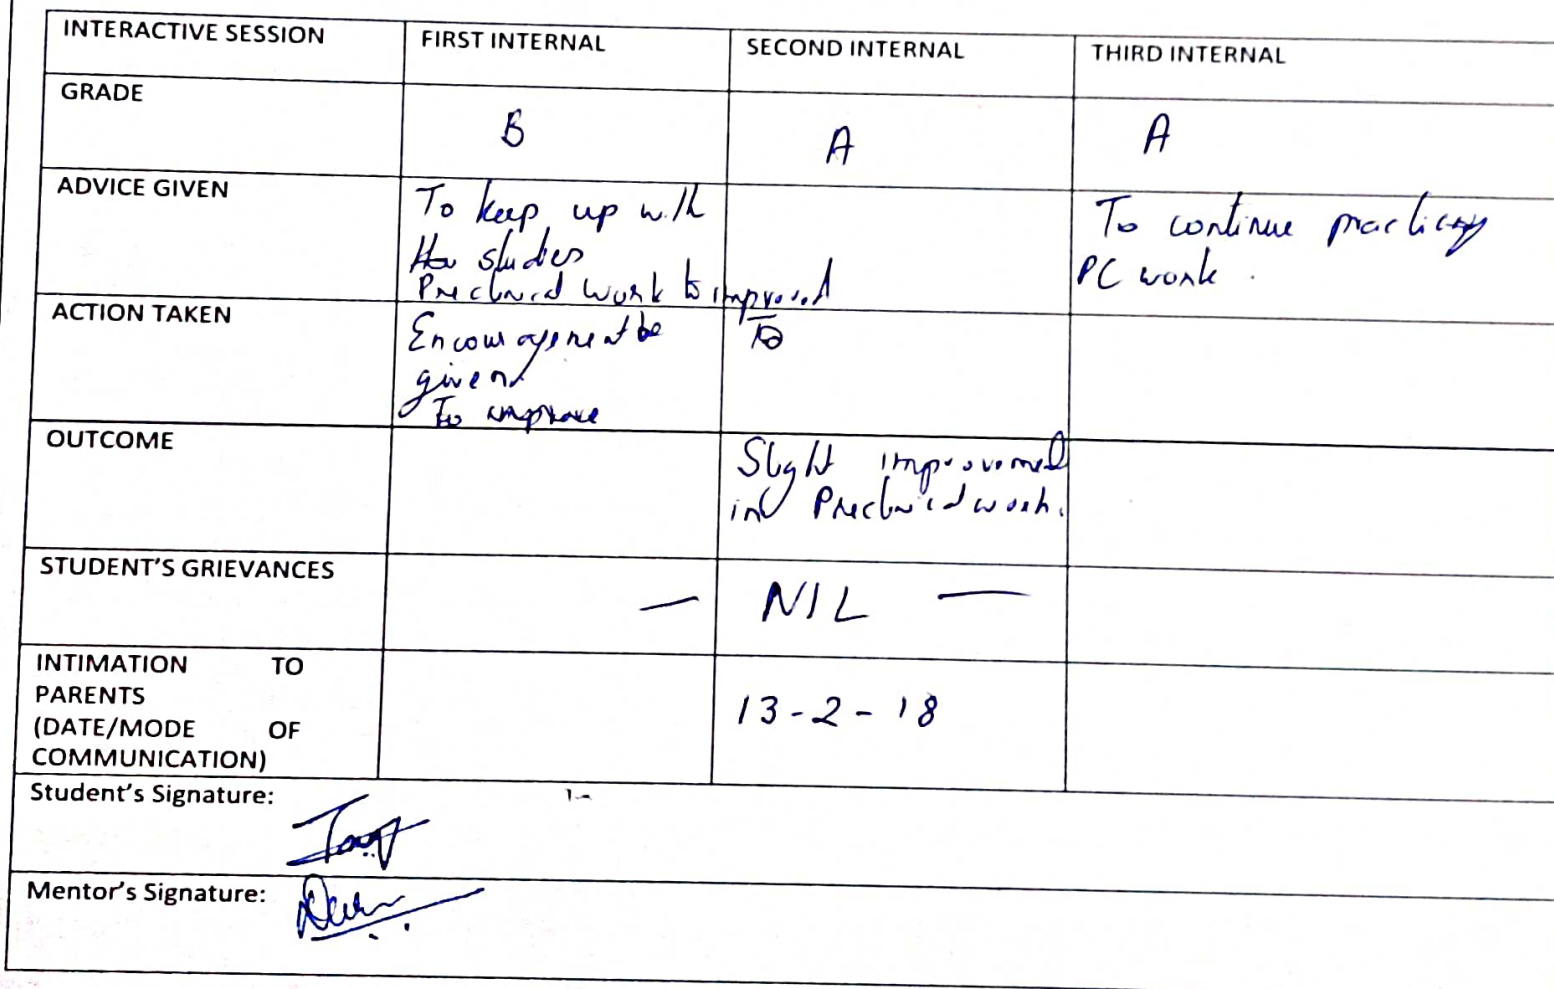 INTERACTIVE SESSION FIRST INTERNAL SECOND INTERNAL THIRD INTERNAL
GRADE B A A
ADVICE GIVEN
To keep up with
the studies
Preclinical work to improved
To continue practicing
PC work.
ACTION TAKEN
Encouragement be
given
To improve
To
OUTCOME
Slight improvement
in Preclinical work.
STUDENT'S GRIEVANCES — NIL —
INTIMATION TO
PARENTS
(DATE/MODE OF
COMMUNICATION)
13-2-18
Student's Signature:
Mentor's Signature: